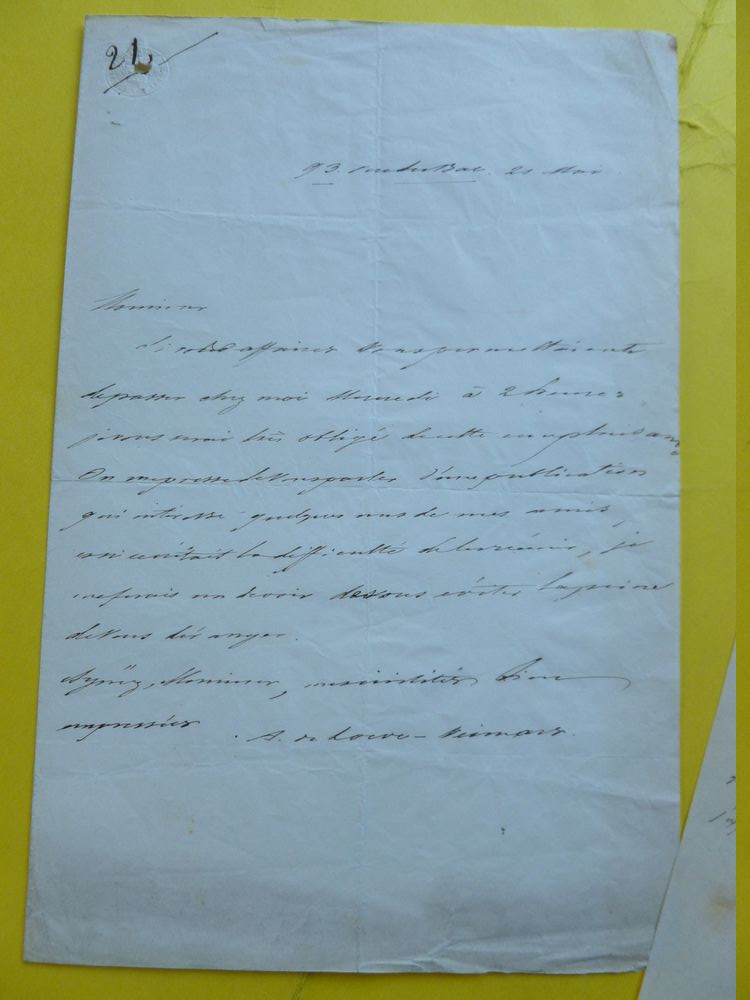 21
93. rue du Bac. 21 Mai
Monsieur
Si vos affaires vous permettaient
de passer chez moi Mercredi à 2 heures
je vous serai très obligé de cette
On me presse de vous parler d'une publication
qui intéresse quelques uns de mes amis,
la difficulté de la réunir, je
me ferais un devoir de vous éviter la peine
de vous déranger.
Agréez, Monsieur, mes civilités bien
empressées
A. de Loeve-Veimars.